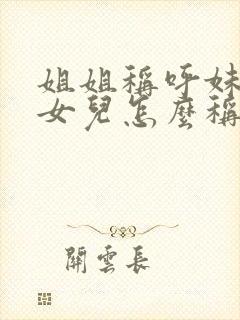 姐姐稱呼妹
女兒怎麼稱
關雲長